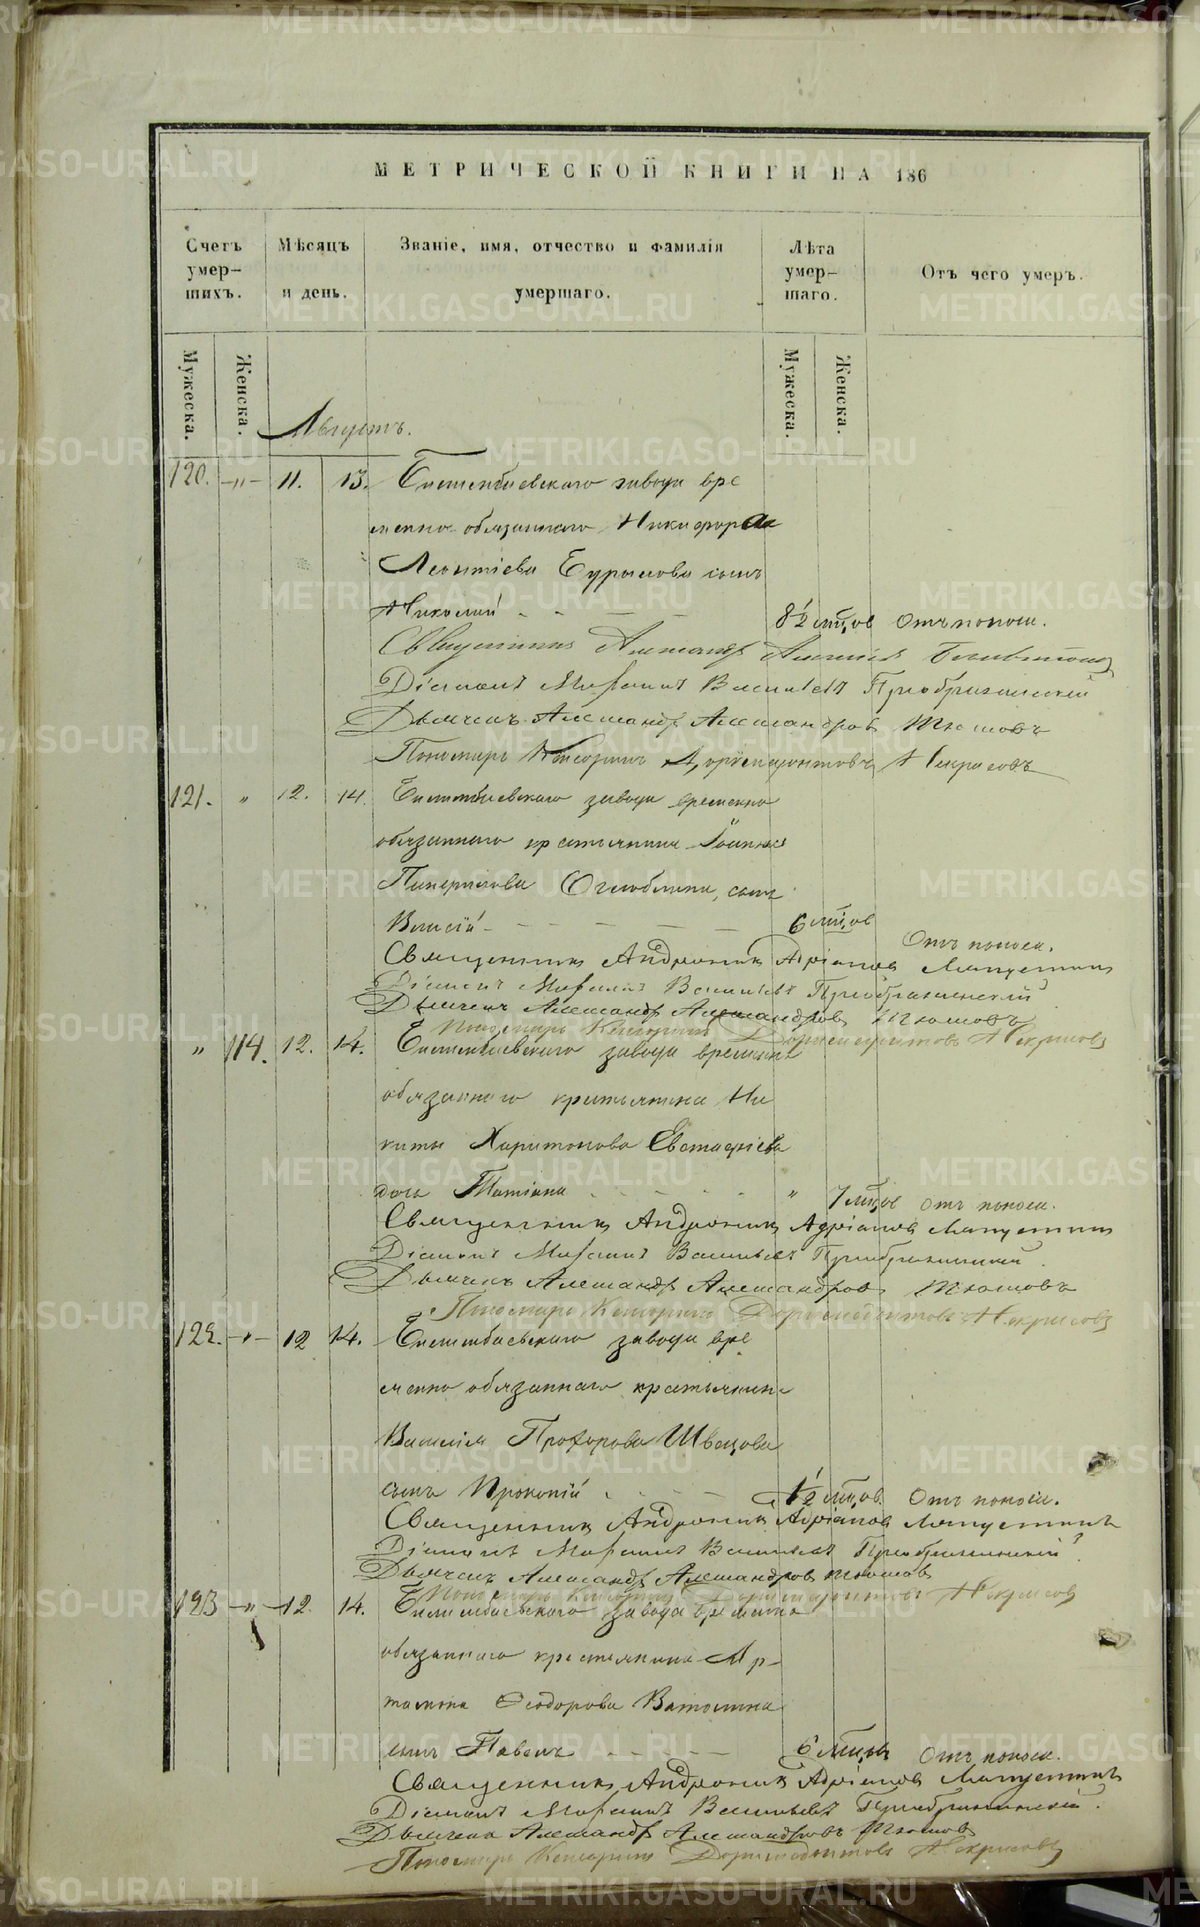 МЕТРИЧЕСКОЙ КНИГИ НА 186
Счетъ умер- шихъ.
Мѣсяцъ и день.
Званіе, имя, отчество и фамилія умершаго.
Лѣта умер- шаго.
Отъ чего умеръ.
Мужеска.
Женска.
Мужеска.
Женска.
Августъ.
120. -"- 11. 13. Билимбаевскаго завода вре
менно обязаннаго Никифора
Леонтіева Бурмасова сынъ
Николай 8½ мѣс,ов Отъ поноса.
Священникъ Александръ
Діаконъ Василіевъ Преображенскій
Дьячекъ Александръ Александровъ Тюшовъ
Пономарь Кенсоринъ Доримедонтовъ Некрасовъ
121. " 12. 14. Билимбаевскаго завода временно
обязаннаго крестьянина Іоанна
Оглоблина сынъ
Власій 6 мѣс,ов
Отъ поноса.
Священникъ Андроникъ Адріановъ Лапустинъ
Діаконъ Василіевъ Преображенскій
Дьячекъ Александръ Александровъ Тюшовъ
Пономарь Кенсоринъ Доримедонтовъ Некрасовъ
" 114. 12. 14. Билимбаевскаго завода временно
обязаннаго крестьянина Ни
киты Харитонова Евстафіева
дочь Татіана " 7 мѣс,ов отъ поноса.
Священникъ Андроникъ Адріановъ Лапустинъ
Діаконъ Василіевъ Преображенскій
Дьячекъ Александръ Александровъ Тюшовъ
Пономарь Кенсоринъ Доримедонтовъ Некрасовъ
122. -"- 12 14. Билимбаевскаго завода вре
менно обязаннаго крестьянина
Василія Прохорова Швецова
сынъ Прокопій 1½ мѣс,ов. Отъ поноса.
Священникъ Андроникъ Адріановъ Лапустинъ
Діаконъ Василіевъ Преображенскій
Дьячекъ Александръ Александровъ Тюшовъ
Пономарь Кенсоринъ Доримедонтовъ Некрасовъ
123 -"- 12. 14. Билимбаевскаго завода временно
обязаннаго крестьянина Ар-
тамона Ѳеодорова Ватолина
сынъ Павелъ 6 мѣс,ов Отъ поноса.
Священникъ Андроникъ Адріановъ Лапустинъ
Діаконъ Василіевъ Преображенскій.
Дьячекъ Александръ Александровъ Тюшовъ
Пономарь Кенсоринъ Доримедонтовъ Некрасовъ
METRIKI.GASO-URAL.RU